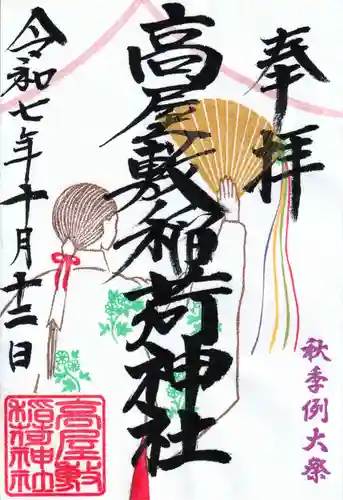 奉拝
高屋敷稲荷神社
令和七年十月十二日
秋季例大祭
高屋敷
稲荷神社